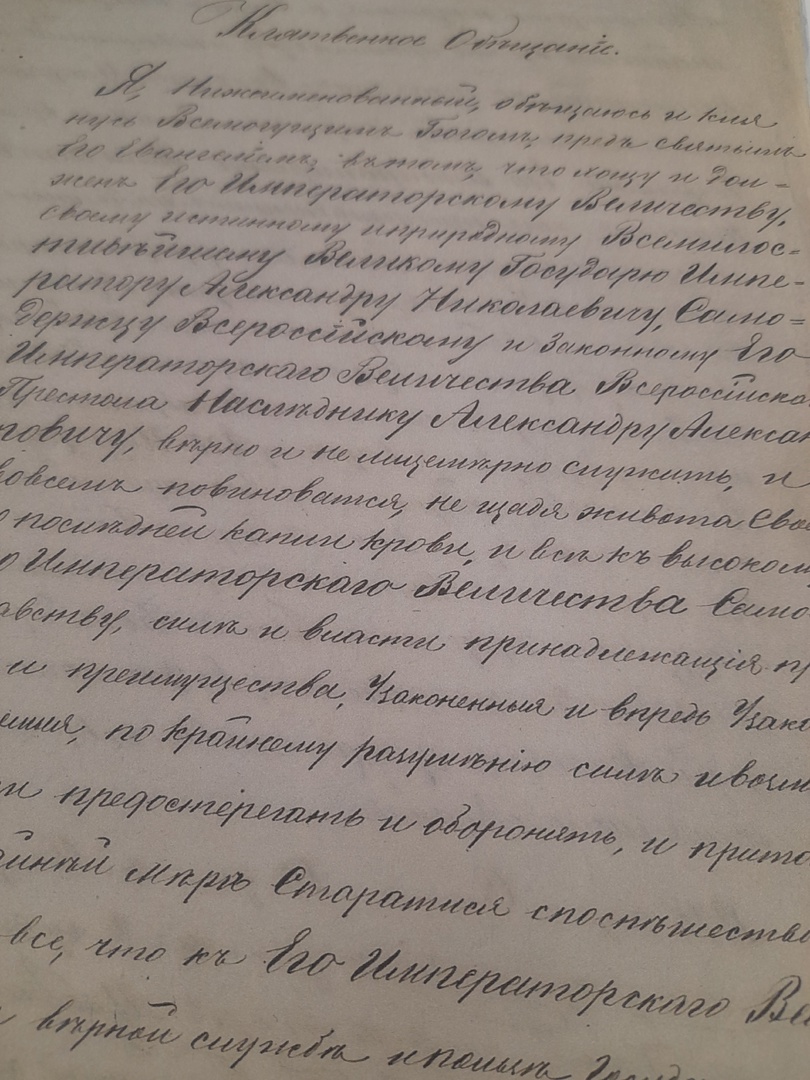 Клятвенное Обѣщаніе.
Я, Нижеименованный, обѣщаюсь и кля
нусь Всемогущимъ Богомъ, предъ святымъ
Его Евангеліемъ, въ томъ, что хощу и дол-
женъ Его Императорскому Величеству,
своему истинному и природному Всемилос-
тивѣйшему Великому Государю Импе-
ратору Александру Николаевичу, Само-
держцу Всероссійскому и Законному Его
Императорскаго Величества Всероссійска
Престола Наслѣднику Александру Алексан
ровичу, вѣрно и не лицемѣрно служить, и
вовсемъ повиноватся, не щадя живота Свое
послѣдней капли крови, и всѣ къ высоком
о Императорскаго Величества Само
авству, силѣ и власти принадлежащія пр
и преимущества, Узаконенныя и впредь Узако
емыя, по крайнему разумѣнію силѣ и возм
и предостерегать и оборонять, и прито
айнѣй мѣрѣ Старатися споспѣшество
все, что къ Его Императорскаго Ве
вѣрной службѣ и пользѣ